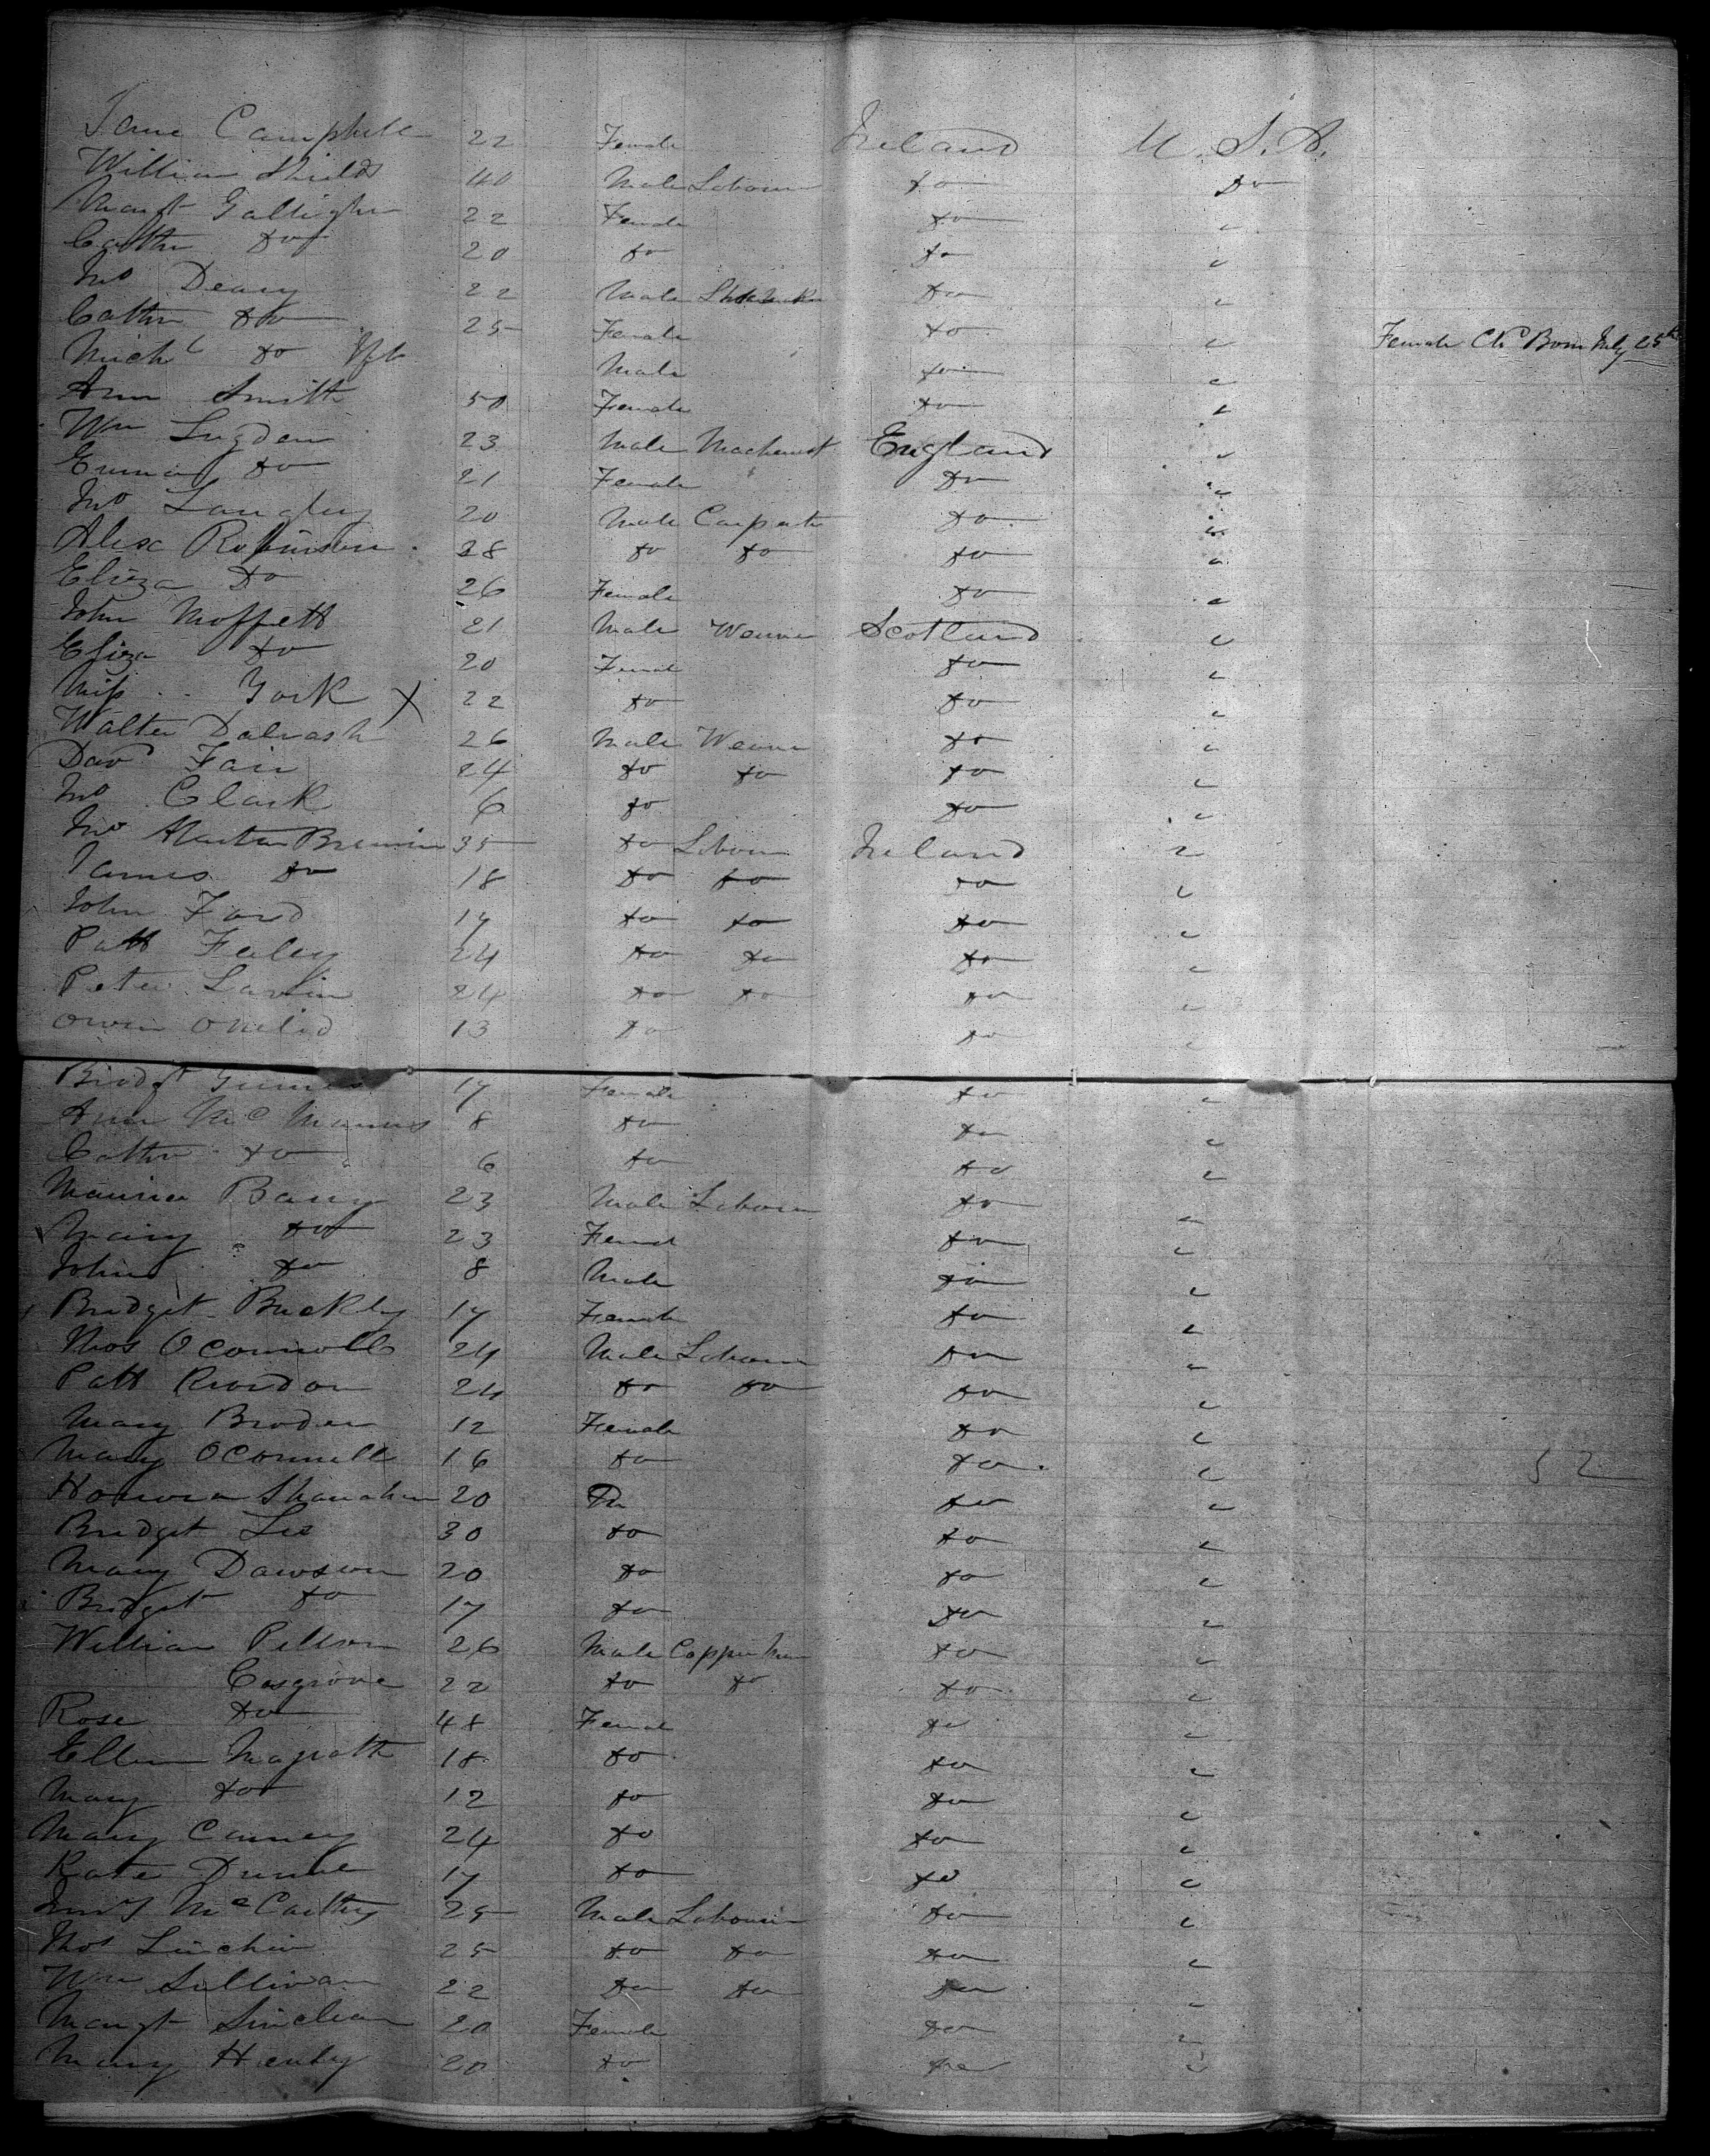 Jane Campbell 22 Female Ireland U.S.A.
William Shields 40 Male Labourer do Do
Margt Galligher 22 Female do "
Cathn do 20 do do "
Jno Deary 22 Male do "
Cathn do 25 Female do " Female Ch Born July 25th
Michl do Inft Male do "
Ann Smith 50 Female do "
Wm Sugden 23 Male Machenist England "
Emma do 21 Female do "
Jno Langley 20 Male Carpentr do "
Alex Robinson 28 do do do "
Eliza Do 26 Female do "
John Moffett 21 Male Weaver Scotland "
Eliza Do 20 Femal do "
Miss York X 22 do do "
Walter 26 Male Weaver do "
Davd Fair 24 do do do "
Jno Clark 6 do do "
Jno 35 do Labour Ireland "
James do 18 do do do "
John Ford 17 do do do "
Patt Feley 24 do do do "
Peter Lavin 24 do do do "
Owen 13 do do "
Bridgt 17 Female do "
Ann McManus 8 do do "
Cathn do 6 do do "
Maurice Barry 23 Male Labour do "
Mary do 23 Femal do "
John do 8 Male do "
Bridget Buckley 17 Female do "
Thos OConnell 24 Male Labour do "
Patt Riordon 24 do do do "
Mary Broder 12 Female do "
Mary OConnell 16 do do " 52
Honora Shanahan 20 Do do "
Bridget Lee 30 do do "
Mary Dawson 20 do do "
Bridget do 17 do Do "
William 26 Male do "
Cosgrove 22 do do do "
Rose do 48 Femal do "
Ellen Magrath 18 do do "
Mary do 12 do do "
Mary Carney 24 do do "
Kate Dunne 17 do do "
McCarthy 25 Male Labourer do "
Thos Linehin 25 do do do "
Wm Sullivan 22 do do do "
Margt 20 Female do "
Mary Henley 20 do do "